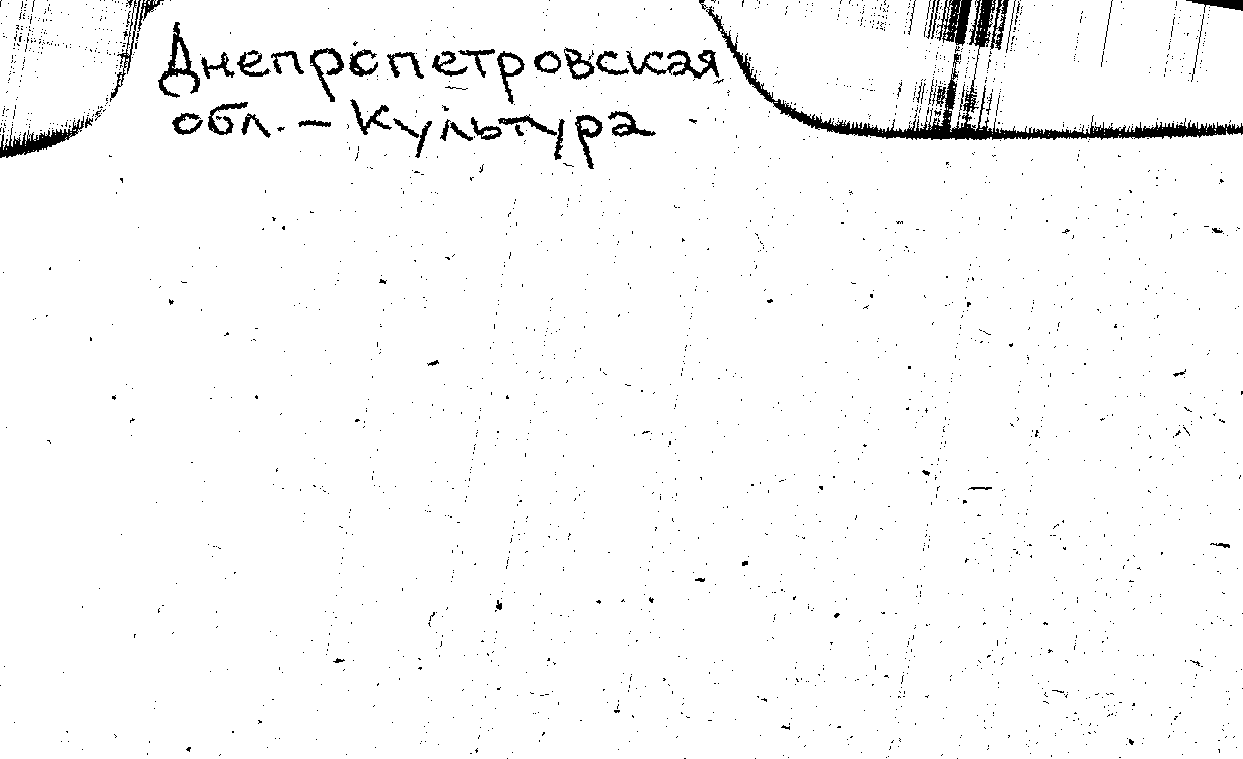 Днепропетровская
обл. – Культура